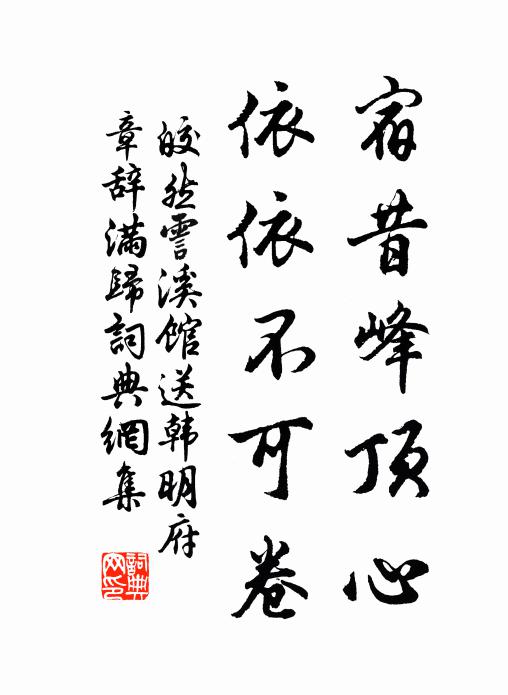 宿昔峰顶心
依依不可卷
皎然雲溪館送韩明府
章辞满歸詞典網集
詞典網印